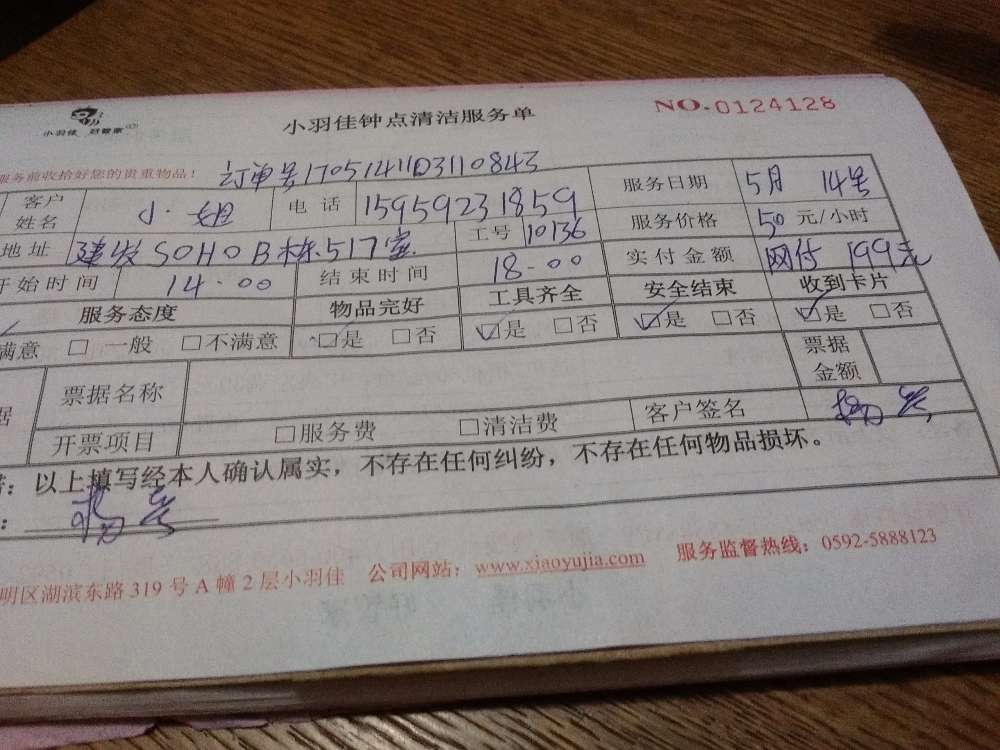 小羽佳 好管家
小羽佳钟点清洁服务单
NO.0124128
服务前收拾好您的贵重物品!
订单号1705141103110843
客户姓名 小姐 电话 15959231859 服务日期 5月14号
地址 建发SOHO B栋517室 工号 10136 服务价格 50元/小时
开始时间 14.00 结束时间 18.00 实付金额 网付 199元
服务态度 物品完好 工具齐全 安全结束 收到卡片
满意 □ 一般 □不满意 ☑是 □否 ☑是 □否 ☑是 □否 ☑是 □否
票据名称 票据金额
开票项目 □服务费 □清洁费 客户签名
以上填写经本人确认属实，不存在任何纠纷，不存在任何物品损坏。
明区湖滨东路319号A幢2层小羽佳 公司网站：www.xiaoyujia.com 服务监督热线：0592-5888123